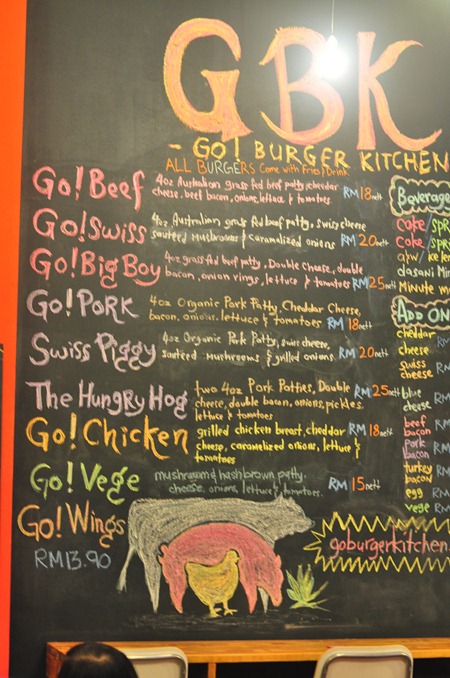 GBK
- GO! BURGER KITCHEN
ALL BURGERS Come with Fries/Drink
Go! Beef
4oz Australian grass fed beef patty, cheddar
cheese, beef bacon, onions, lettuce, & tomatoes
RM 18nett
Go! Swiss
4oz Australian grass fed beef patty, swiss cheese
sauteed mushrooms & caramalized onions
RM 20nett
Go! Big Boy
4oz grass fed beef patty, Double cheese, double
bacon, onion rings, lettuce & tomatoes
RM 25nett
Go! Pork
4oz Organic Pork Patty, Cheddar Cheese,
bacon, onions, lettuce & tomatoes
RM 18nett
Swiss Piggy
4oz Organic Pork Patty, swiss cheese,
sauteed mushrooms & grilled onions
RM 20nett
The Hungry Hog
two 4oz Pork Patties, Double
cheese, double bacon, onions, pickles,
lettuce & tomatoes
RM 25nett
Go! Chicken
grilled chicken breast, cheddar
cheese, caramelized onions, lettuce &
tomatoes
RM 18nett
Go! Vege
mushroom & hashbrown patty,
cheese, onions, lettuce & tomatoes.
RM 15nett
Go! Wings
RM 13.90
Beverage
coke/SPR
coke/SPR
dasani Min
Minute m
ADD ON
cheddar
cheese RM
swiss
cheese RM
blue
cheese RM
beef
bacon RM
pork
bacon RM
turkey
bacon RM
egg RM
vege RM
goburgerkitchen.